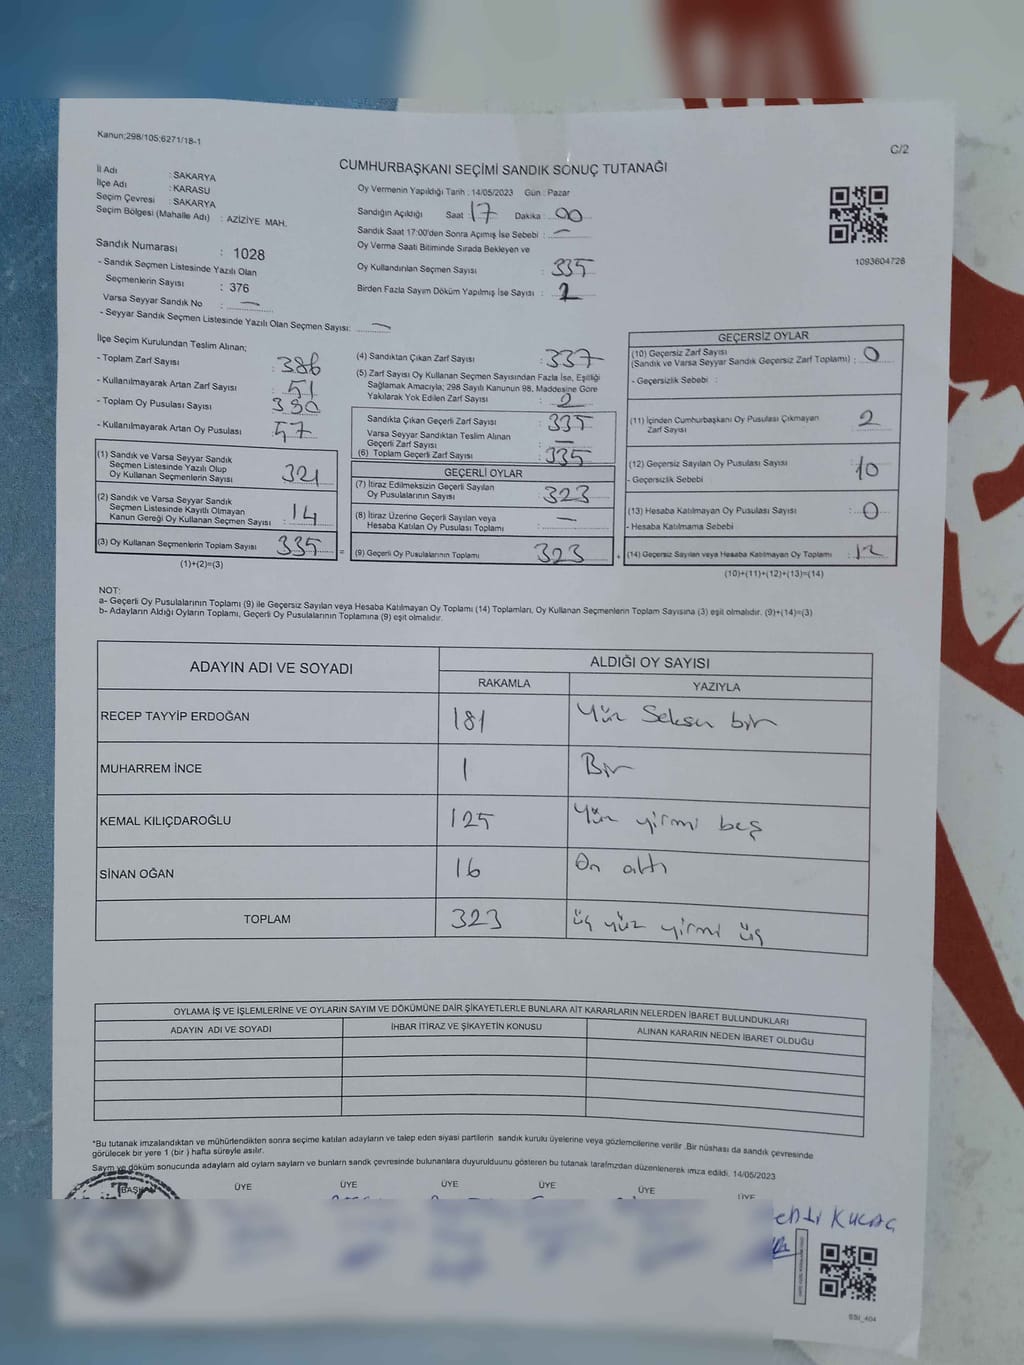 Kanun;298/105;6271/18-1
C/2
CUMHURBAŞKANI SEÇİMİ SANDIK SONUÇ TUTANAĞI
İl Adı : SAKARYA
İlçe Adı : KARASU
Seçim Çevresi : SAKARYA
Seçim Bölgesi (Mahalle Adı) : AZİZİYE MAH.
Sandık Numarası : 1028
- Sandık Seçmen Listesinde Yazılı Olan
Seçmenlerin Sayısı : 376
Varsa Seyyar Sandık No : —
- Seyyar Sandık Seçmen Listesinde Yazılı Olan Seçmen Sayısı: —
Oy Vermenin Yapıldığı Tarih : 14/05/2023 Gün : Pazar
Sandığın Açıldığı Saat : 17 Dakika : 00
Sandık Saat 17:00'den Sonra Açımış İse Sebebi : —
Oy Verme Saati Bitiminde Sırada Bekleyen ve
Oy Kullandırılan Seçmen Sayısı : 335
Birden Fazla Sayım Döküm Yapılmış İse Sayısı : 2
1093604728
İlçe Seçim Kurulundan Teslim Alınan;
- Toplam Zarf Sayısı : 386
- Kullanılmayarak Artan Zarf Sayısı : 51
- Toplam Oy Pusulası Sayısı : 380
- Kullanılmayarak Artan Oy Pusulası : 57
(1) Sandık ve Varsa Seyyar Sandık
Seçmen Listesinde Yazılı Olup
Oy Kullanan Seçmenlerin Sayısı : 321
(2) Sandık ve Varsa Seyyar Sandık
Seçmen Listesinde Kayıtlı Olmayan
Kanun Gereği Oy Kullanan Seçmen Sayısı : 14
(3) Oy Kullanan Seçmenlerin Toplam Sayısı : 335
(1)+(2)=(3)
(4) Sandıktan Çıkan Zarf Sayısı : 337
(5) Zarf Sayısı Oy Kullanan Seçmen Sayısından Fazla İse, Eşitliği
Sağlamak Amacıyla; 298 Sayılı Kanunun 98. Maddesine Göre
Yakılarak Yok Edilen Zarf Sayısı : 2
Sandıkta Çıkan Geçerli Zarf Sayısı : 335
Varsa Seyyar Sandıktan Teslim Alınan
Geçerli Zarf Sayısı : —
(6) Toplam Geçerli Zarf Sayısı : 335
GEÇERLİ OYLAR
(7) İtiraz Edilmeksizin Geçerli Sayılan
Oy Pusulalarının Sayısı : 323
(8) İtiraz Üzerine Geçerli Sayılan veya
Hesaba Katılan Oy Pusulası Toplamı : —
= (9) Geçerli Oy Pusulalarının Toplamı : 323
GEÇERSİZ OYLAR
(10) Geçersiz Zarf Sayısı
(Sandık ve Varsa Seyyar Sandık Geçersiz Zarf Toplamı) : 0
- Geçersizlik Sebebi :
(11) İçinden Cumhurbaşkanı Oy Pusulası Çıkmayan
Zarf Sayısı : 2
(12) Geçersiz Sayılan Oy Pusulası Sayısı : 10
- Geçersizlik Sebebi
(13) Hesaba Katılmayan Oy Pusulası Sayısı : 0
- Hesaba Katılmama Sebebi
+ (14) Geçersiz Sayılan veya Hesaba Katılmayan Oy Toplamı : 12
(10)+(11)+(12)+(13)=(14)
NOT:
a- Geçerli Oy Pusulalarının Toplamı (9) ile Geçersiz Sayılan veya Hesaba Katılmayan Oy Toplamı (14) Toplamları, Oy Kullanan Seçmenlerin Toplam Sayısına (3) eşit olmalıdır. (9)+(14)=(3)
b- Adayların Aldığı Oyların Toplamı, Geçerli Oy Pusulalarının Toplamına (9) eşit olmalıdır.
ADAYIN ADI VE SOYADI
ALDIĞI OY SAYISI
RAKAMLA YAZIYLA
RECEP TAYYİP ERDOĞAN 181 Yüz Seksen bir
MUHARREM İNCE 1 Bir
KEMAL KILIÇDAROĞLU 125 Yüz yirmi beş
SİNAN OĞAN 16 On altı
TOPLAM 323 üç yüz yirmi üç
OYLAMA İŞ VE İŞLEMLERİNE VE OYLARIN SAYIM VE DÖKÜMÜNE DAİR ŞİKAYETLERLE BUNLARA AİT KARARLARIN NELERDEN İBARET BULUNDUKLARI
ADAYIN ADI VE SOYADI İHBAR İTİRAZ VE ŞİKAYETİN KONUSU ALINAN KARARIN NEDEN İBARET OLDUĞU
*Bu tutanak imzalandıktan ve mühürlendikten sonra seçime katılan adayların ve talep eden siyasi partilerin sandık kurulu üyelerine veya gözlemcilerine verilir .Bir nüshası da sandık çevresinde
görülecek bir yere 1 (bir ) hafta süreyle asılır.
Sayım ve döküm sonucunda adayların ald oyların sayların ve bunların sandk çevresinde bulunanlara duyurulduunu gösteren bu tutanak tarafmzdan düzenlenerek imza edildi. 14/05/2023
BAŞKAN ÜYE ÜYE ÜYE ÜYE ÜYE
SSI_404